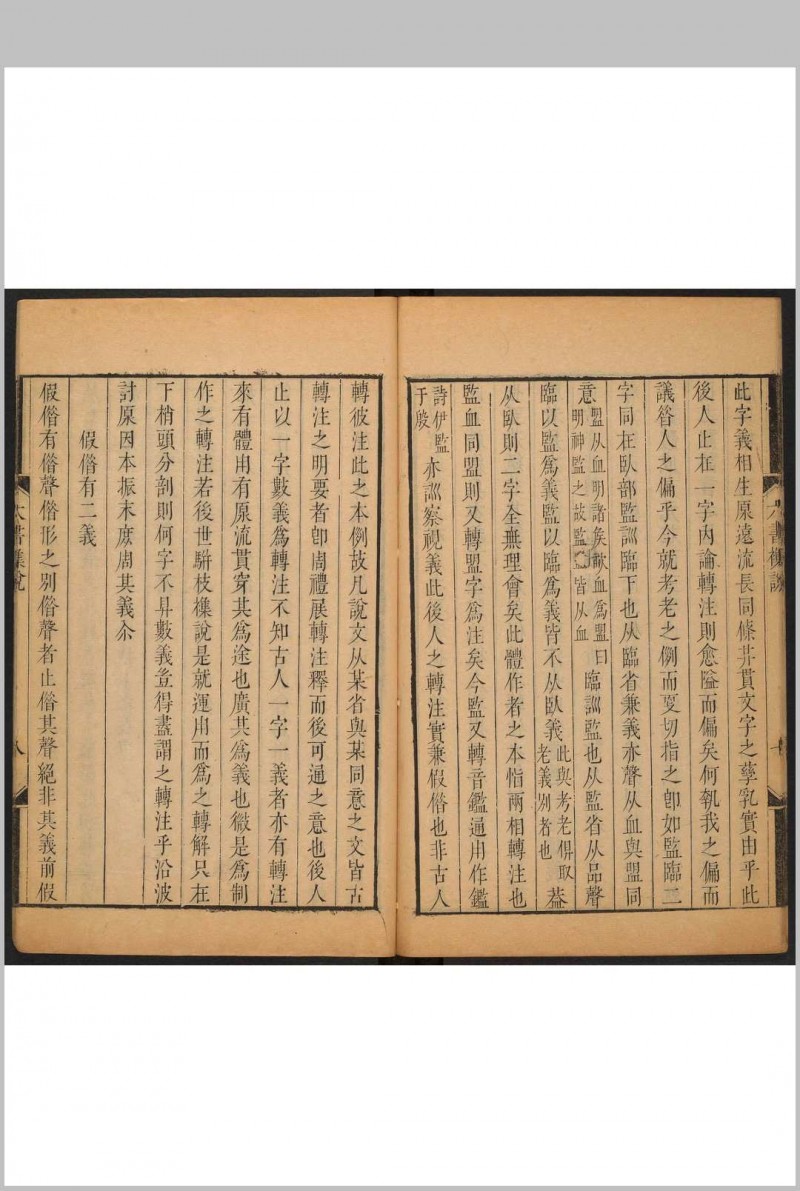 此字義相生原遠流長同條井貫文字之孳乳實由乎此
後人止在一字內論轉注則愈隘而偏矣何執我之偏而
議昝人之偏乎今就考老之例而更切指之即如監臨二
字同在臥部監訓臨下也从臨省兼義亦聲从血與盟同
意盟从血明諸矦歃血為盟曰明神監之故監皆从血臨訓監也从監省从品聲
臨以監爲義監以臨爲義皆不从臥義此與考老俱取老義別者也葢
从臥則二字全無理會矣此體作者之本恉兩相轉注也
監血同盟則又轉盟字爲注矣今監又轉音鑑通用作鑑
詩伊監于殷亦訓察視義此後人之轉注實兼假借也非古人
轉彼注此之本例故凡說文从某省與某同意之文皆古
轉注之明要者卽周禮展轉注釋而後可通之意也後人
止以一字數義爲轉注不知古人一字一義者亦有轉注
來有體用有原流貫穿其爲途也廣其爲義也微是爲制
作之轉注若後世駢枝襍說是就運用而爲之轉解只在
下梢頭分剖則何字不具數義豈得盡謂之轉注乎沿波
討原因本振末庶周其義尒
假借有二義
假借有借聲借形之別借聲者止借其聲絕非其義前假
六書襍說
八
六書襍說